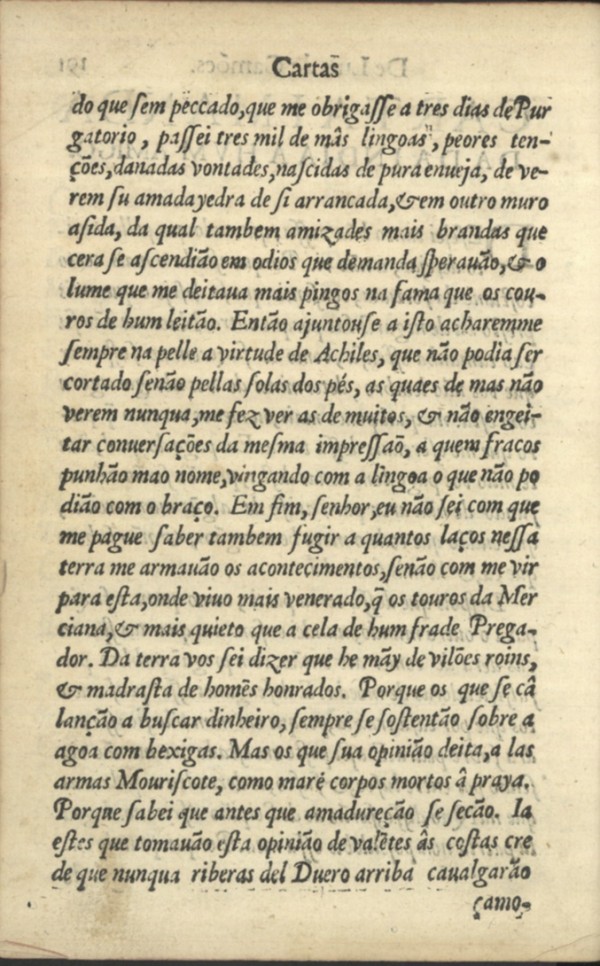 Cartas
do que ſem peccado,que me obrigaſſe a tres dias de Pur
gatorio , paſſei tres mil de mâs lingoas, peores ten-
ções,danadas vontades,naſcidas de pura enueja, de ve-
rem ſu amada yedra de ſi arrancada,& em outro muro
aſida, da qual tambem amizades mais brandas que
cera ſe aſcendião em odios que demanda ſperauão,& o
lume que me deitaua mais pingos na fama que os cou-
ros de hum leitão. Então ajuntouſe a iſto acharemme
ſempre na pelle a virtude de Achiles, que não podia ſer
cortado ſenão pellas ſolas dos pés, as quaes de mas não
verem nunqua,me fez ver as de muitos, & não engei-
tar conuerſações da meſma impreſſaõ, a quem fracos
punhão mao nome,vingando com a lingoa o que não po
dião com o braço. Em fim, ſenhor,eu não ſei com que
me pague ſaber tambem fugir a quantos laços neſſa
terra me armauão os acontecimentos,ſenão com me vir
para eſta,onde viuo mais venerado,q̃ os touros da Mer
ciana,& mais quieto que a cela de hum frade Prega-
dor. Da terra vos ſei dizer que he mãy de vilões roins,
& madraſta de homẽs honrados. Porque os que ſe câ
lanção a buſcar dinheiro, ſempre ſe ſoſtentão ſobre a
agoa com bexigas. Mas os que ſua opinião deita,a las
armas Mouriſcote, como maré corpos mortos â praya.
Porque ſabei que antes que amadureção ſe ſecão. Ia
eſtes que tomauão eſta opinião de valẽtes âs coſtas cre
de que nunqua riberas del Duero arriba caualgarão
çamo-